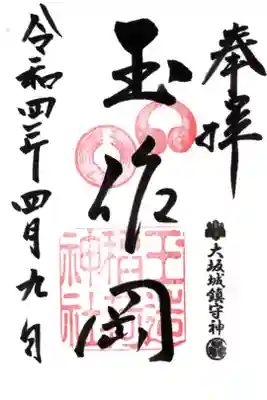 奉拝
大坂城鎮守神
玉作岡
玉造
稲荷
神社
令和四年四月九日